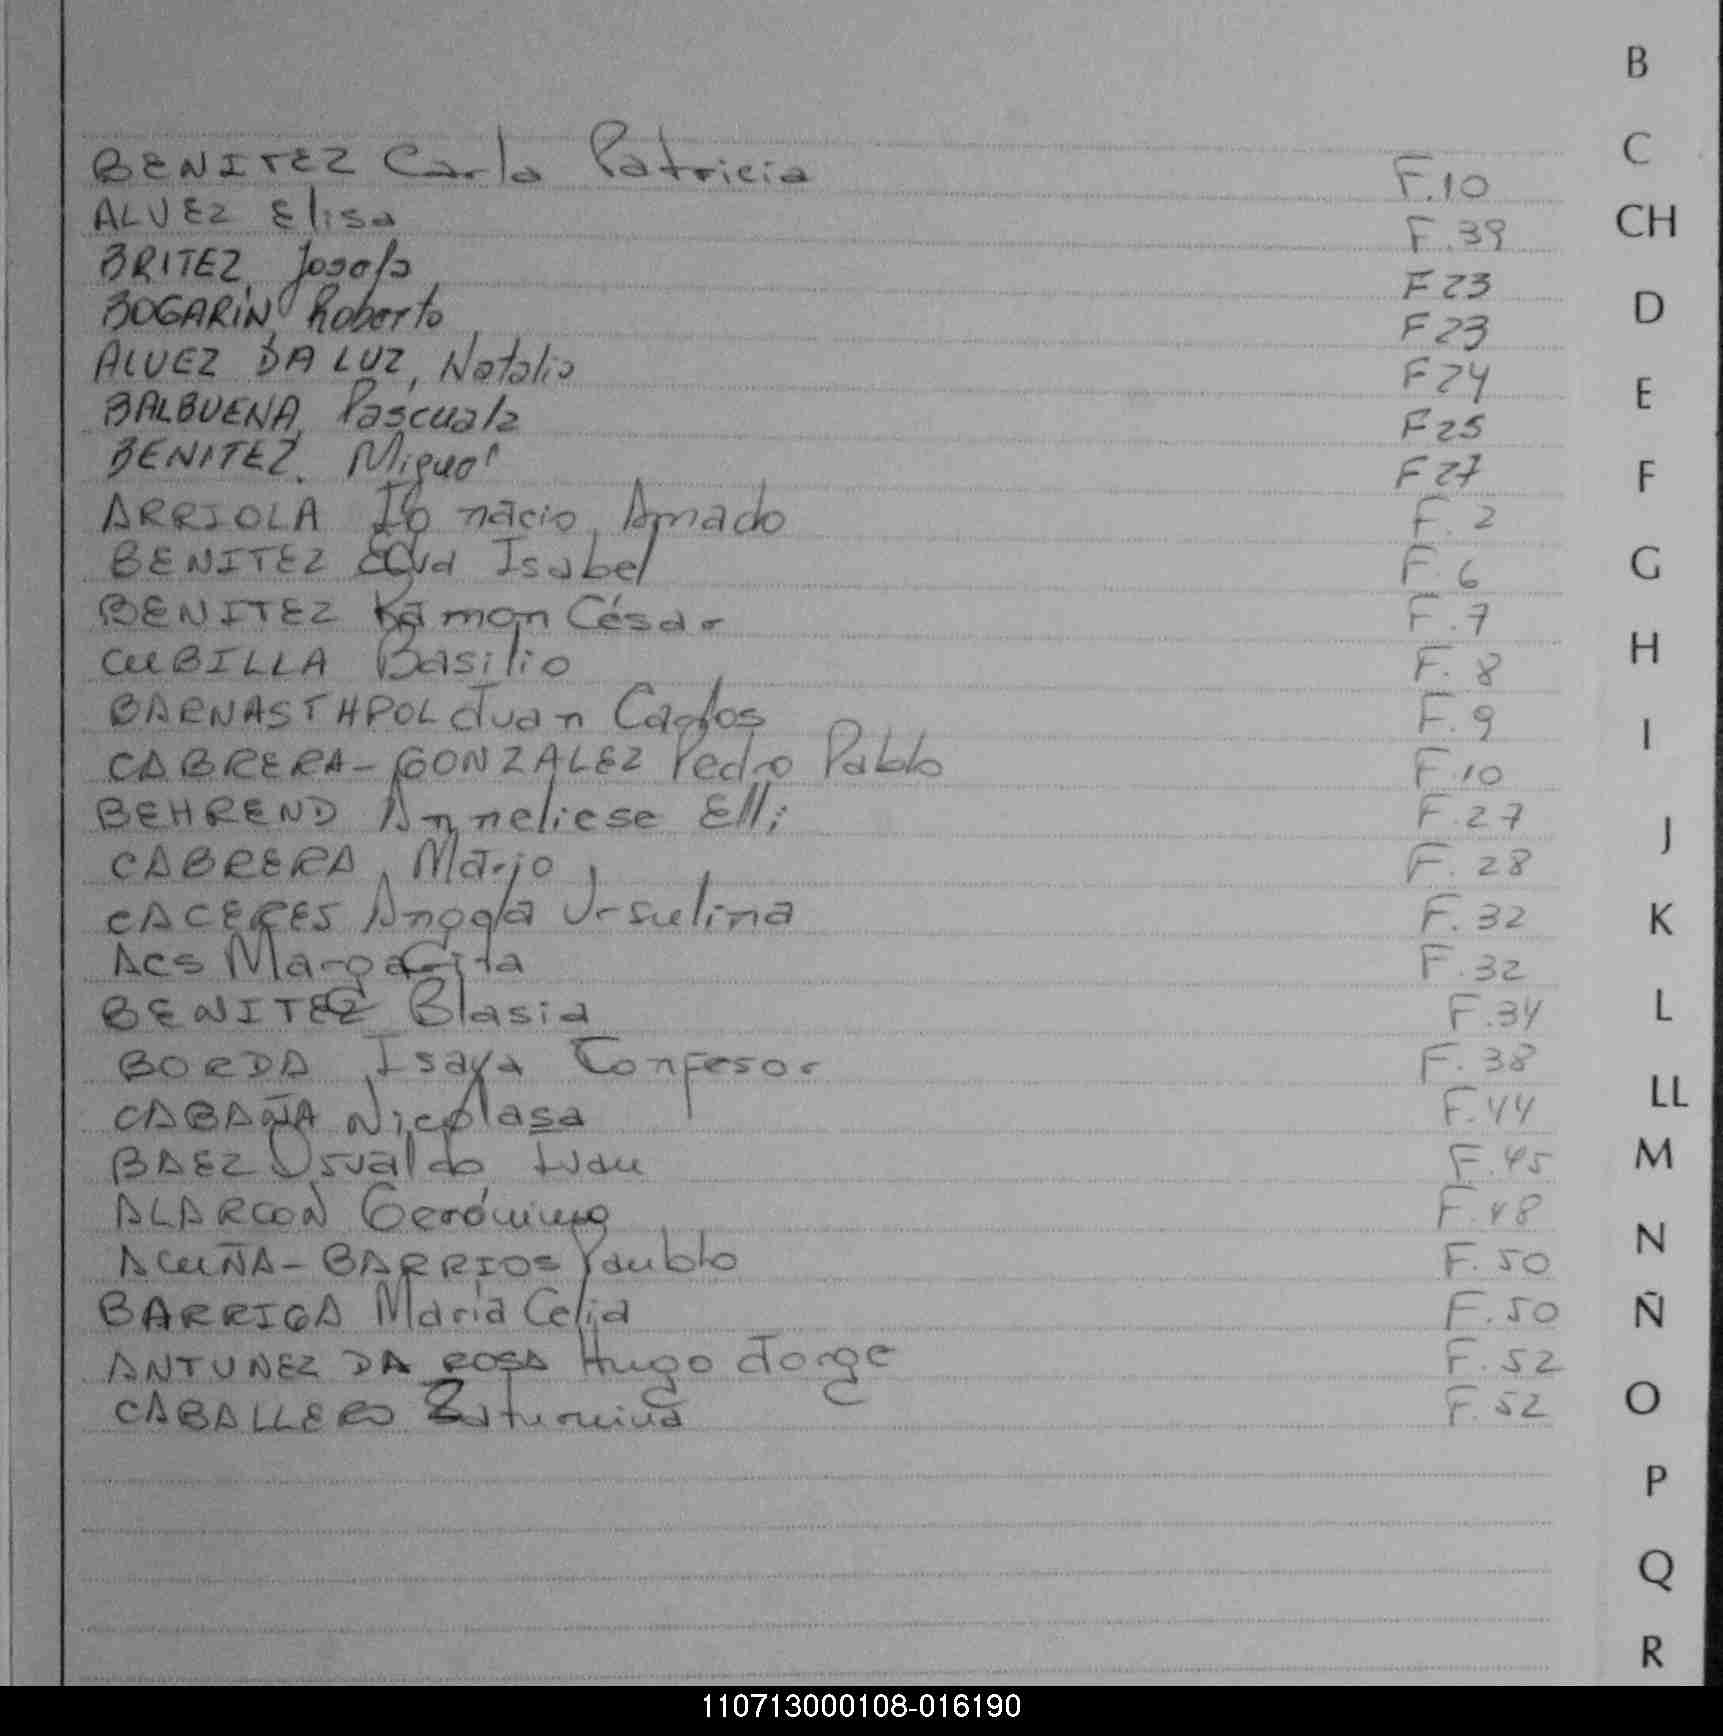 B
C
BENITEZ Carla Patricia F.10
ALVEZ Elisa F.39
CH
BRITEZ, Josefa F23
BOGARIN, Roberto F23
D
ALVEZ DA LUZ, Natalia F24
BALBUENA, Pascuala F25
E
BENITEZ, Miguel F27
F
ARRIOLA Ignacio Amado F.2
BENITEZ Eva Isabel F.6
G
BENITEZ Ramon César F.7
CUBILLA Basilio F.8
H
BARNASTHPOL Juan Carlos F.9
I
CABRERA-GONZALEZ Pedro Pablo F.10
BEHREND Anneliese Elli F.27
J
CABRERA, Mario F.28
CACERES Angela Ursulina F.32
K
ACS Margarita F.32
BENITEZ Blasia F.34
L
BORDA Isaya Confesor F.38
LL
CABAÑA Nicolasa F.44
BAEZ Osvaldo Ivan F.45
M
ALARCON Gerónimo F.48
N
ACUÑA-BARRIOS Paublo F.50
BARRIGA Maria Celia F.50
Ñ
ANTUNEZ DA ROSA Hugo Jorge F.52
CABALLERO Saturnina F.52
O
P
Q
R
110713000108-016190